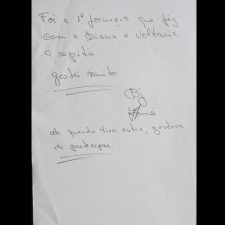 Foi a 1ª formação que fiz
com a Diana e voltaria
a repetir.
gostei muito
obs. quando tiver outra, gostava
de participar.